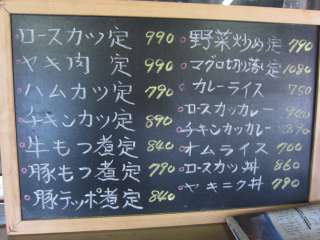 ロースカツ定 990
ヤキ肉 定 990
ハムカツ定 790
チキンカツ定 890
牛もつ煮定 840
豚もつ煮定 790
豚テッポ煮定 840
野菜炒め定 790
マグロ切落定 1080
カレーライス 750
ロースカツカレー 900
チキンカツカレー 870
オムライス 700
ロースカツ丼 860
ヤキニク丼 790